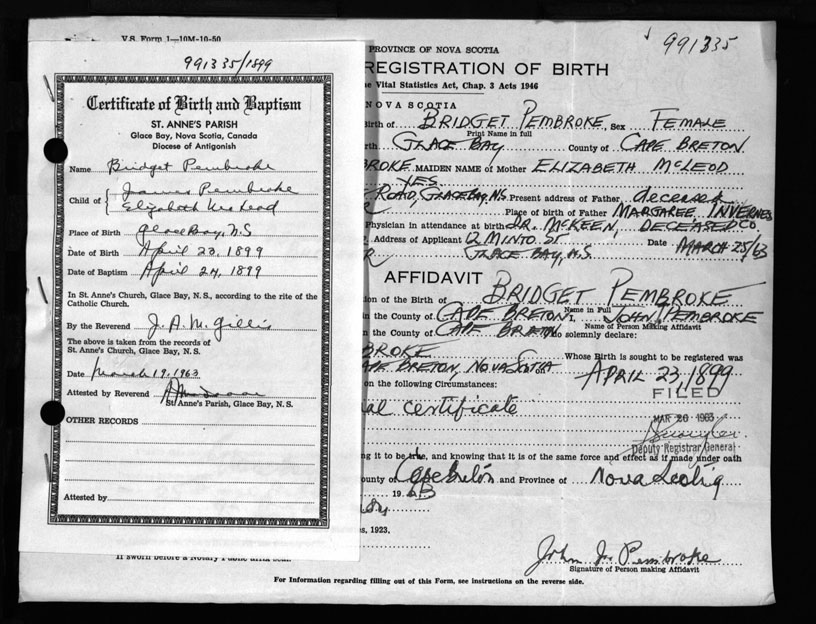 V.S. Form 1—10M-10-50
991335/1899
Certificate of Birth and Baptism
ST. ANNE'S PARISH
Glace Bay, Nova Scotia, Canada
Diocese of Antigonish
Name Bridget Pembroke
Child of { James Pembroke
Elizabeth McLeod
Place of Birth Glace Bay, N.S
Date of Birth April 23, 1899
Date of Baptism April 24, 1899
In St. Anne's Church, Glace Bay, N. S., according to the rite of the
Catholic Church.
By the Reverend J. A. M. Gillis
The above is taken from the records of
St. Anne's Church, Glace Bay, N. S.
Date March 19, 1963
Attested by Reverend
St. Anne's Parish, Glace Bay, N. S.
OTHER RECORDS
Attested by
991335
PROVINCE OF NOVA SCOTIA
REGISTRATION OF BIRTH
Vital Statistics Act, Chap. 3 Acts 1946
NOVA SCOTIA
Birth of BRIDGET PEMBROKE, Sex FEMALE
Print Name in full
GLACE BAY County of CAPE BRETON
BROKE MAIDEN NAME of Mother ELIZABETH McLEOD
YES
ROAD, GLACE BAY, N.S. Present address of Father deceased
Place of birth of Father MARGAREE, INVERNESS CO,
Physician in attendance at birth DR. McKEEN, DECEASED
Address of Applicant 12 MINTO ST Date MARCH 25/63
GLACE BAY, N.S.
AFFIDAVIT
on of the Birth of BRIDGET PEMBROKE
Name in Full
in the County of CAPE BRETON, I, JOHN PEMBROKE
Name of Person Making Affidavit
n the County of CAPE BRETON do solemnly declare:
BROKE Whose Birth is sought to be registered was
CAPE BRETON, NOVA SCOTIA APRIL 23, 1899
on the following Circumstances:
FILED
certificate
MAR 26 1963
Deputy Registrar General
ng it to be true, and knowing that it is of the same force and effect as if made under oath
ounty of Cape Breton and Province of Nova Scotia
19 63
s, 1923.
If sworn before a Notary Public affix seal.
John J. Pembroke
Signature of Person making Affidavit
For Information regarding filling out of this Form, see instructions on the reverse side.